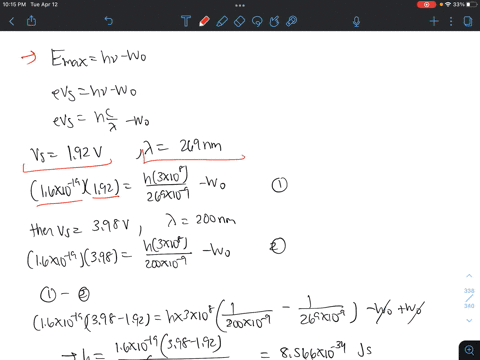 10:15 PM Tue Apr 12
33%
→ Emax = hν - W0
eVs = hν - W0
eVs = h c/λ - W0
Vs = 1.92 V, λ = 269 nm
(1.6×10^-19)(1.92) = h(3×10^8)/269×10^-9 - W0 ①
then Vs = 3.98 V, λ = 200 nm
(1.6×10^-19)(3.98) = h(3×10^8)/200×10^-9 - W0 ②
① - ②
(1.6×10^-19)(3.98-1.92) = h×3×10^8 (1/200×10^-9 - 1/269×10^-9) - W0 + W0
→ h = 1.6×10^-19(3.98-1.92) = 8.566×10^-34 Js